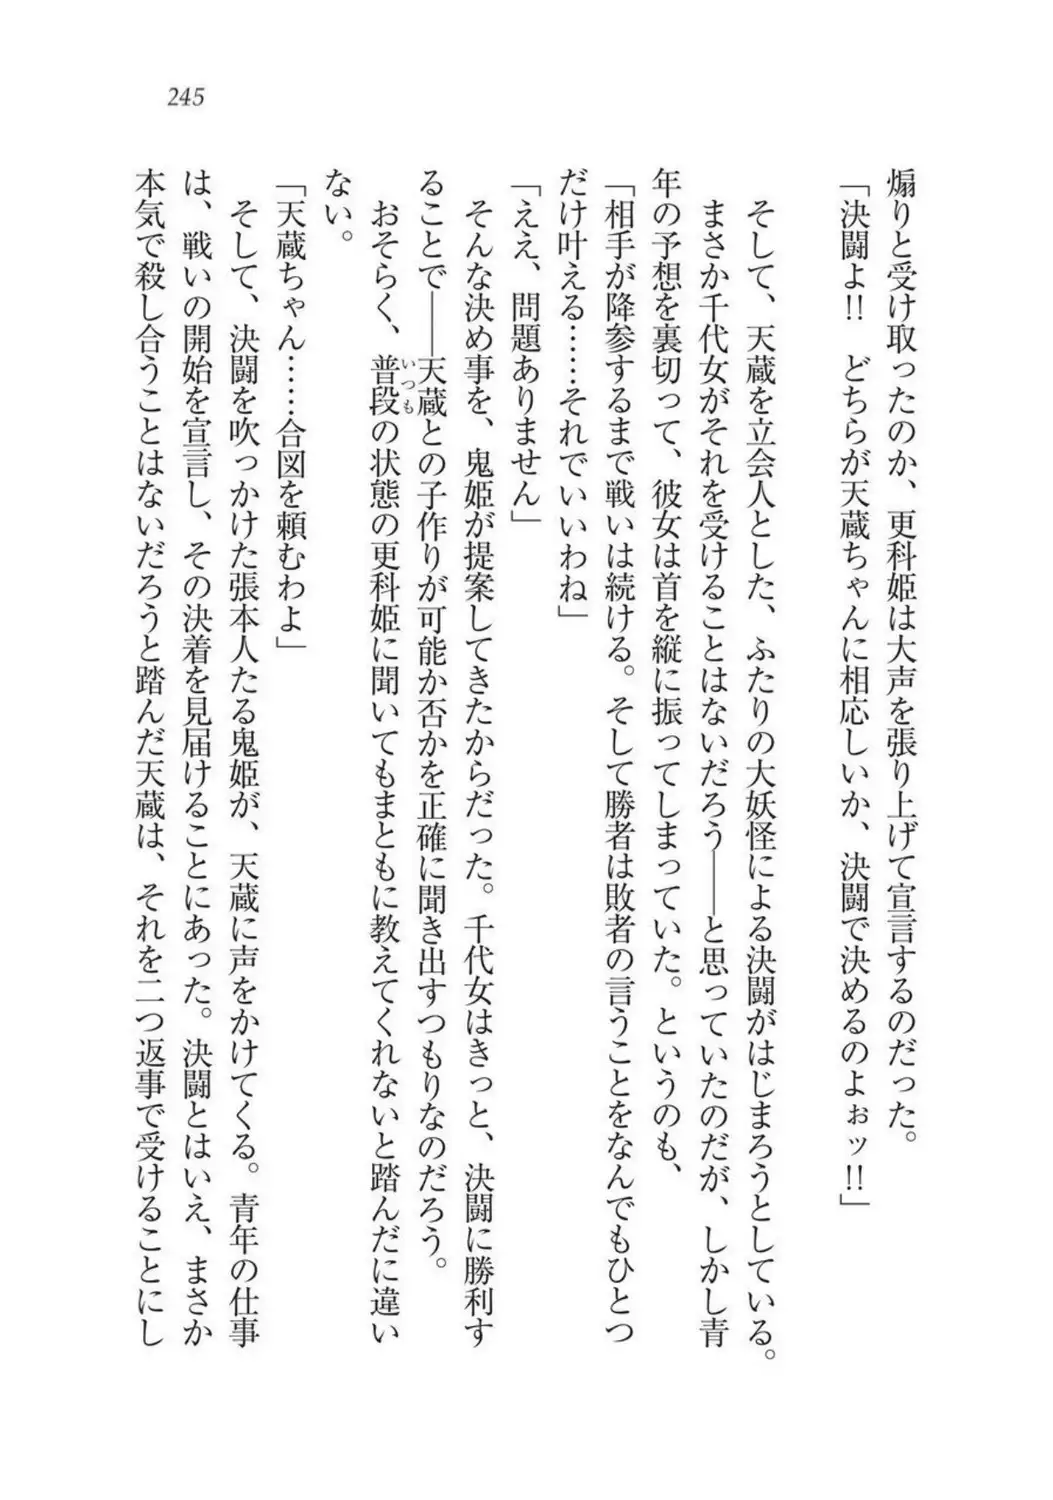 245
煽りと受け取ったのか、更科姫は大声を張り上げて宣言するのだった。
「決闘よ!! どちらが天蔵ちゃんに相応しいか、決闘で決めるのよぉッ!!」
そして、天蔵を立会人とした、ふたりの大妖怪による決闘がはじまろうとしている。
まさか千代女がそれを受けることはないだろう――と思っていたのだが、しかし青
年の予想を裏切って、彼女は首を縦に振ってしまっていた。というのも、
「相手が降参するまで戦いは続ける。そして勝者は敗者の言うことをなんでもひとつ
だけ叶える……それでいいわね」
「ええ、問題ありません」
そんな決め事を、鬼姫が提案してきたからだった。千代女はきっと、決闘に勝利す
ることで――天蔵との子作りが可能か否かを正確に聞き出すつもりなのだろう。
おそらく、普段の状態の更科姫に聞いてもまともに教えてくれないと踏んだに違い
いつも
ない。
「天蔵ちゃん……合図を頼むわよ」
そして、決闘を吹っかけた張本人たる鬼姫が、天蔵に声をかけてくる。青年の仕事
は、戦いの開始を宣言し、その決着を見届けることにあった。決闘とはいえ、まさか
本気で殺し合うことはないだろうと踏んだ天蔵は、それを二つ返事で受けることにし